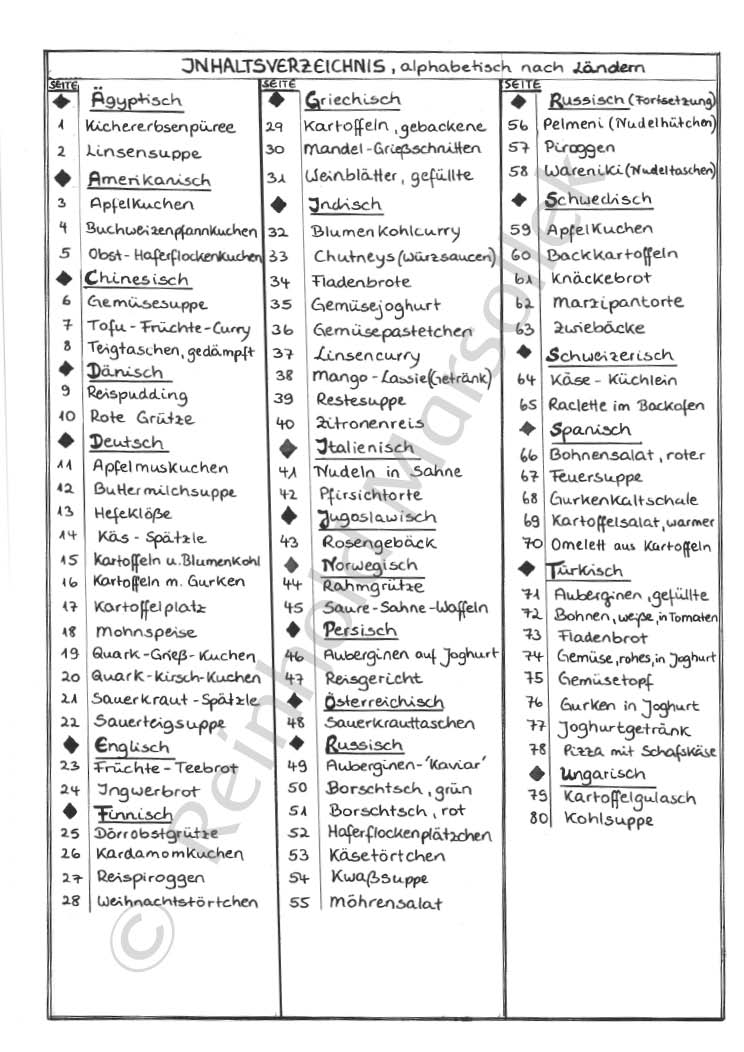 INHALTSVERZEICHNIS, alphabetisch nach Ländern
SEITE
◆ Ägyptisch
1 Kichererbsenpüree
2 Linsensuppe
◆ Amerikanisch
3 Apfelkuchen
4 Buchweizenpfannkuchen
5 Obst-Haferflockenkuchen
◆ Chinesisch
6 Gemüsesuppe
7 Tofu-Früchte-Curry
8 Teigtaschen, gedämpft
◆ Dänisch
9 Reispudding
10 Rote Grütze
◆ Deutsch
11 Apfelmuskuchen
12 Buttermilchsuppe
13 Hefeklöße
14 Käs-Spätzle
15 Kartoffeln u. Blumenkohl
16 Kartoffeln m. Gurken
17 Kartoffelplatz
18 Mohnspeise
19 Quark-Grieß-Kuchen
20 Quark-Kirsch-Kuchen
21 Sauerkraut-Spätzle
22 Sauerteigsuppe
◆ Englisch
23 Früchte-Teebrot
24 Ingwerbrot
◆ Finnisch
25 Dörrobstgrütze
26 Kardamomkuchen
27 Reispiroggen
28 Weihnachtstörtchen
SEITE
◆ Griechisch
29 Kartoffeln, gebackene
30 Mandel-Grießschnitten
31 Weinblätter, gefüllte
◆ Indisch
32 Blumenkohlcurry
33 Chutneys (Würzsaucen)
34 Fladenbrote
35 Gemüsejoghurt
36 Gemüsepastetchen
37 Linsencurry
38 Mango-Lassie (Getränk)
39 Restesuppe
40 Zitronenreis
◆ Italienisch
41 Nudeln in Sahne
42 Pfirsichtorte
◆ Jugoslawisch
43 Rosengebäck
◆ Norwegisch
44 Rahmgrütze
45 Saure-Sahne-Waffeln
◆ Persisch
46 Auberginen auf Joghurt
47 Reisgericht
◆ Österreichisch
48 Sauerkrauttaschen
◆ Russisch
49 Auberginen-'Kaviar'
50 Borschtsch, grün
51 Borschtsch, rot
52 Haferflockenplätzchen
53 Käsetörtchen
54 Kwaßsuppe
55 Möhrensalat
SEITE
◆ Russisch (Fortsetzung)
56 Pelmeni (Nudelhütchen)
57 Piroggen
58 Wareniki (Nudeltaschen)
◆ Schwedisch
59 Apfelkuchen
60 Backkartoffeln
61 Knäckebrot
62 Marzipantorte
63 Zwiebäcke
◆ Schweizerisch
64 Käse-Küchlein
65 Raclette im Backofen
◆ Spanisch
66 Bohnensalat, roter
67 Feuersuppe
68 Gurkenkaltschale
69 Kartoffelsalat, warmer
70 Omelett aus Kartoffeln
◆ Türkisch
71 Auberginen, gefüllte
72 Bohnen, weiße, in Tomaten
73 Fladenbrot
74 Gemüse, rohes, in Joghurt
75 Gemüsetopf
76 Gurken in Joghurt
77 Joghurtgetränk
78 Pizza mit Schafskäse
◆ Ungarisch
79 Kartoffelgulasch
80 Kohlsuppe
© Reinhold Marsollek